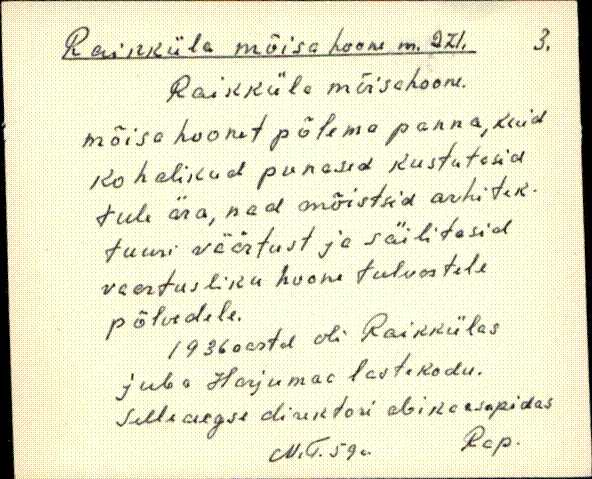 Raikküla mõisahoone m. 271. 3.
Raikküla mõisahoone.
mõisahoonet põlema panna, kuid
kohalikud punased kustutasid
tule ära, nad mõistsid arhitek-
tuuri väärtust ja säilitasid
vaartusliku hoone tulvastele
põlvedele.
1936 aastal oli Raikkülas
juba Harjumaa lastekodu.
Selleaegse direktori abikaasa pidas
M.T. 59 a. Rap.